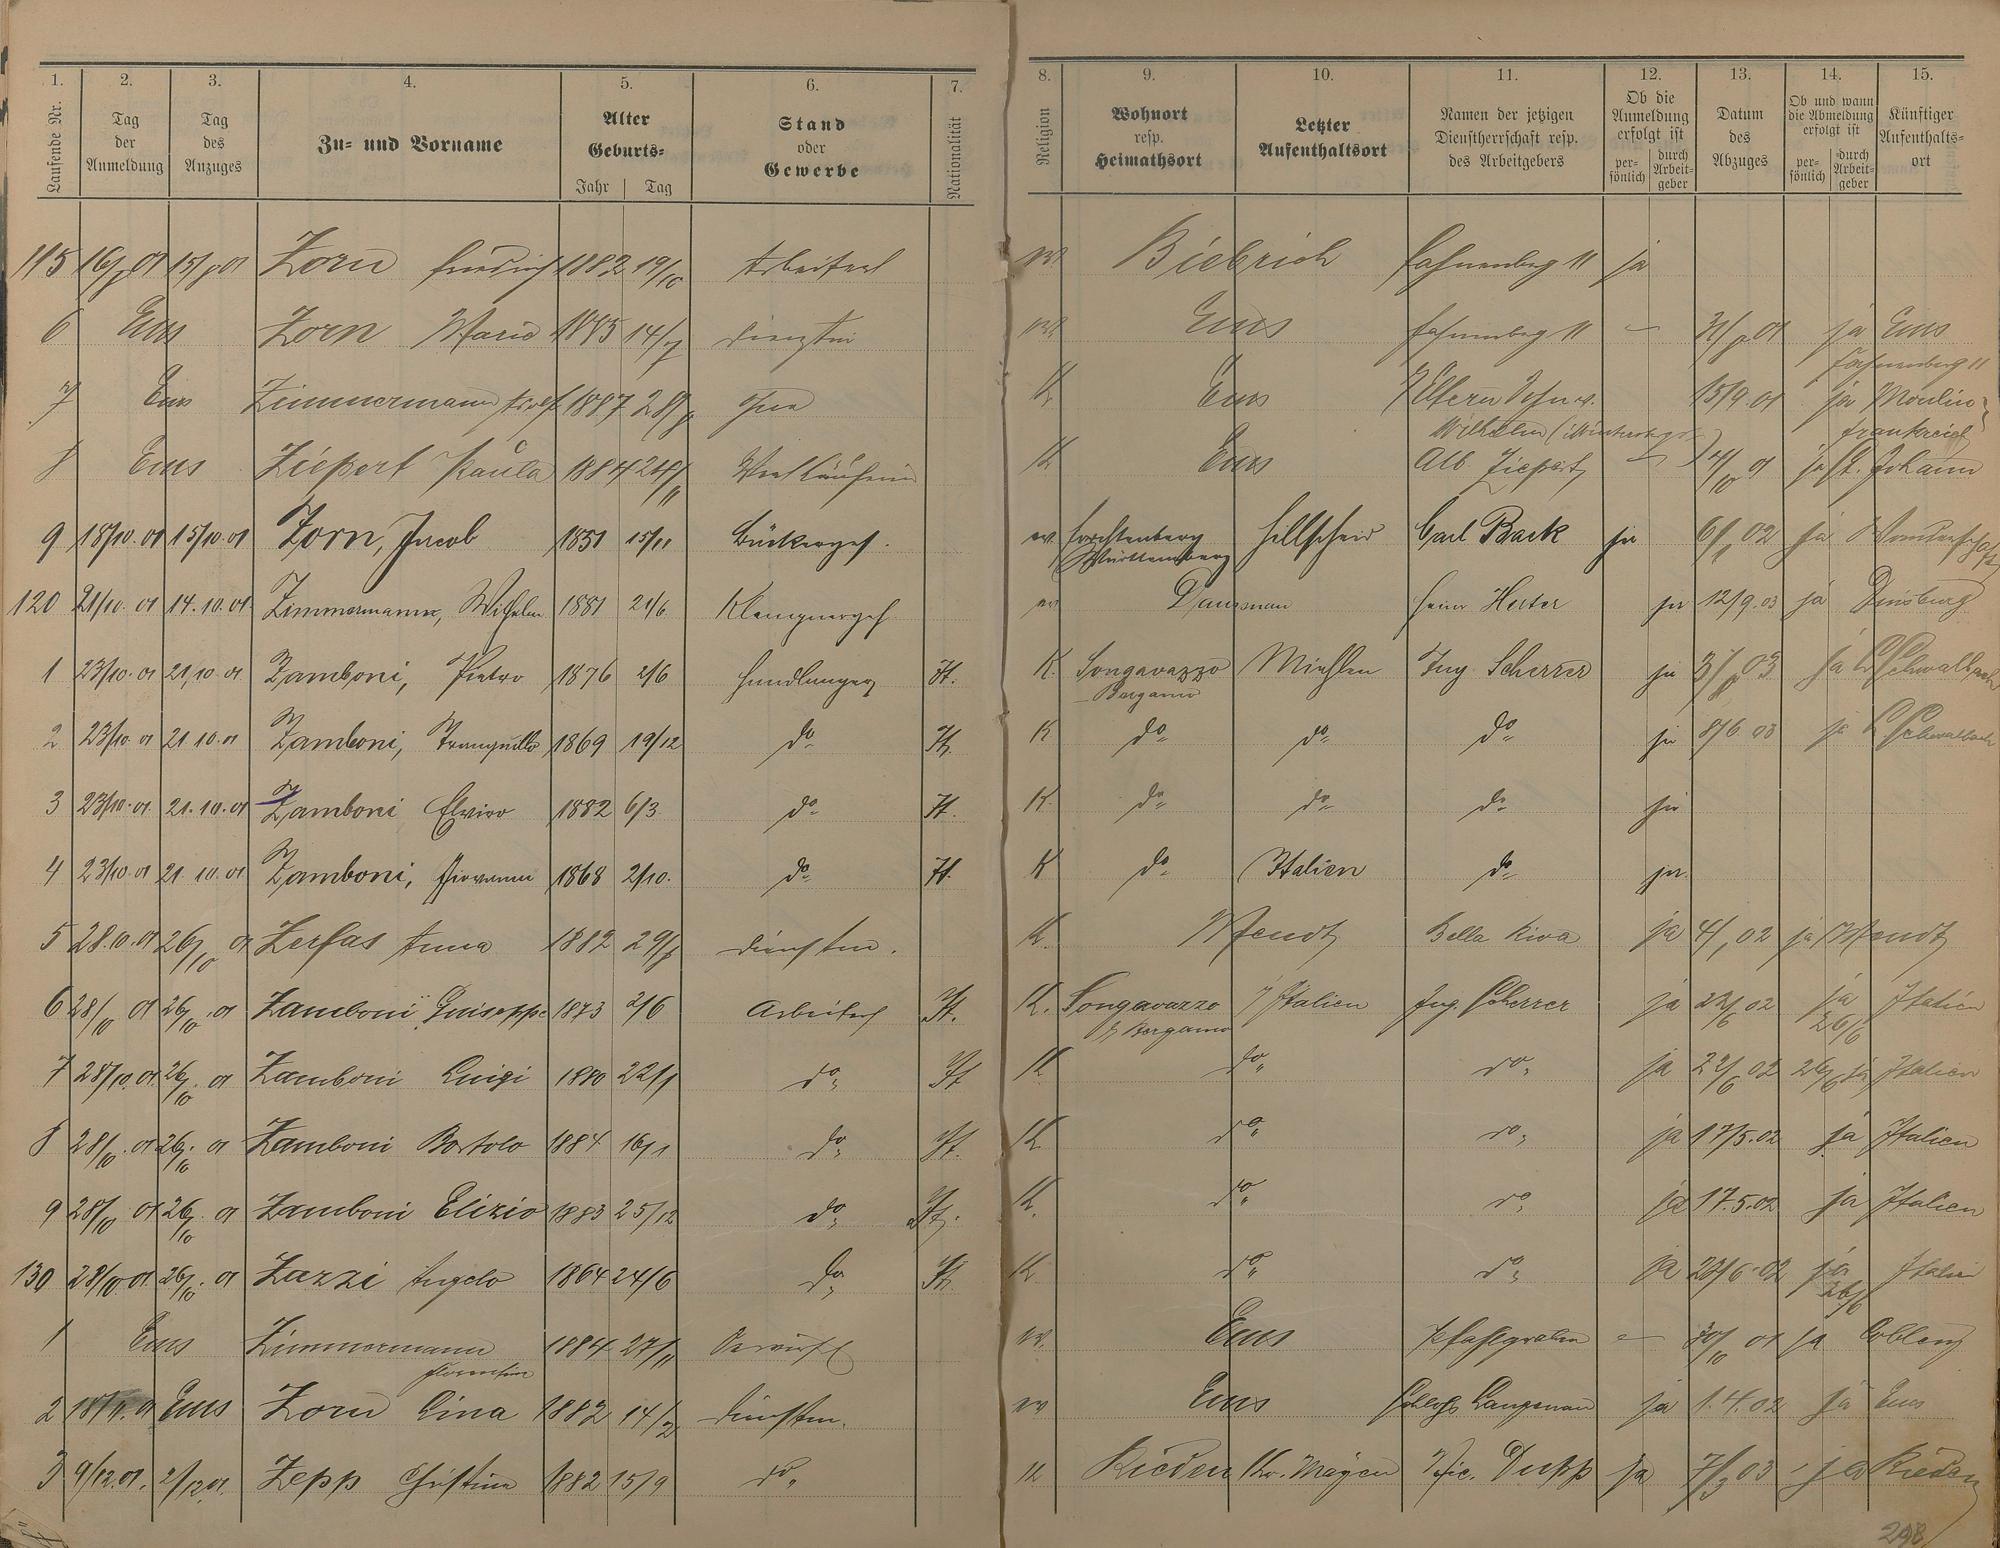 1. 2. 3. 4. 5. 6. 7. 8. 9. 10. 11. 12. 13. 14. 15.
Laufende Nr.
Tag der Anmeldung
Tag des Anzuges
Zu- und Vorname
Alter
Geburts-
Jahr Tag
Stand oder Gewerbe
Nationalität
Religion
Wohnort resp. Heimathsort
Letzter Aufenthaltsort
Namen der jetzigen Dienstherrschaft resp. des Arbeitgebers
Ob die Anmeldung erfolgt ist
per- sönlich durch Arbeit- geber
Datum des Abzuges
Ob und wann die Abmeldung erfolgt ist
per- sönlich durch Arbeit- geber
Künftiger Aufenthalts- ort
115 Zorn Friedrich 1882 19/10 Arbeiter Biebrich 11 ja
6 Ems Zorn Marie 1885 14/7 Ems 11 ja Ems
7 Ems Zimmermann 1887 Ems Eltern 15/9 01 ja Moulin
Wilhelm Frankreich
8 Ems Ziepert Paula 1884 24/11 Verkäuferin K Ems Alb. Ziepert ja St. Johann
9 18/10. 01 15/10. 01 Zorn, Jacob 1851 15/11 Bäckerges. ev. Forchtenberg Hillscheid Carl Back ja 6/1 02 ja Wanderschaft
Württemberg
120 21/10. 01 14. 10. 01 Zimmermann, Wilhelm 1881 21/6 Klempnerges. ev Dausenau Heinr ja 12/9. 03 ja Duisburg
1 23/10. 01 21/10 01 Zamboni, Pietro 1876 2/6 Handlanger It. K. Songavazzo Miehlen Ing. Scherrer ja 03 ja L. Schwalbach
Bergamo
2 23/10. 01 21 10. 01 Zamboni, Tranquillo 1869 19/12 do It. K do do do ja 8/6. 03 ja L. Schwalbach
3 23/10. 01. 21. 10. 01 Zamboni Elviro 1882 6/3 do It. K. do do do ja
4 23/10. 01 21. 10. 01 Zamboni, Giovanni 1868 2/10. do It. K do Italien do ja.
5 28.10.01 26/10 01 Zerfas Anna 1882 Dienstm. K. Bella Riva ja 4/1 02 ja
6 28/10 01 26/10. 01 Zamboni Guiseppe 1873 2/6 Arbeiter It. K. Songavazzo Italien Ing. Scherrer ja 22/6 02 ja 26/6 Italien
Bergamo
7 28/10. 01 26/10. 01 Zamboni Luigi 1880 22/1 do It K do do ja 22/6 02 26/6 ja Italien
8 28/10. 01 26/10. 01 Zamboni Bortolo 1884 16/1 do It. K do do ja 17/5. 02 ja Italien
9 28/10 01 26/10. 01 Zamboni Elizio 1883 25/12 do It. K. do do ja 17. 5. 02 ja Italien
130 28/10 01 26/10. 01 Zazzi Angelo 1864 24/6 do It. K do do ja 22/6. 02 ja 26/6 Italien
1 Ems Zimmermann 1884 27/11 ev. Ems Pfahlgraben 30/10 01 ja Coblenz
2 Ems Zorn Lina 1882 14/2 Dienstm. ev Ems Schloss Langenau ja 1. 4. 02 ja Ems
3 9/12. 01. 2/12. 01. Zepp Christine 1882 15/9 do K Rieden Kr. Mayen Vic. Dupp ja 7/3 03 ja Rieden
298